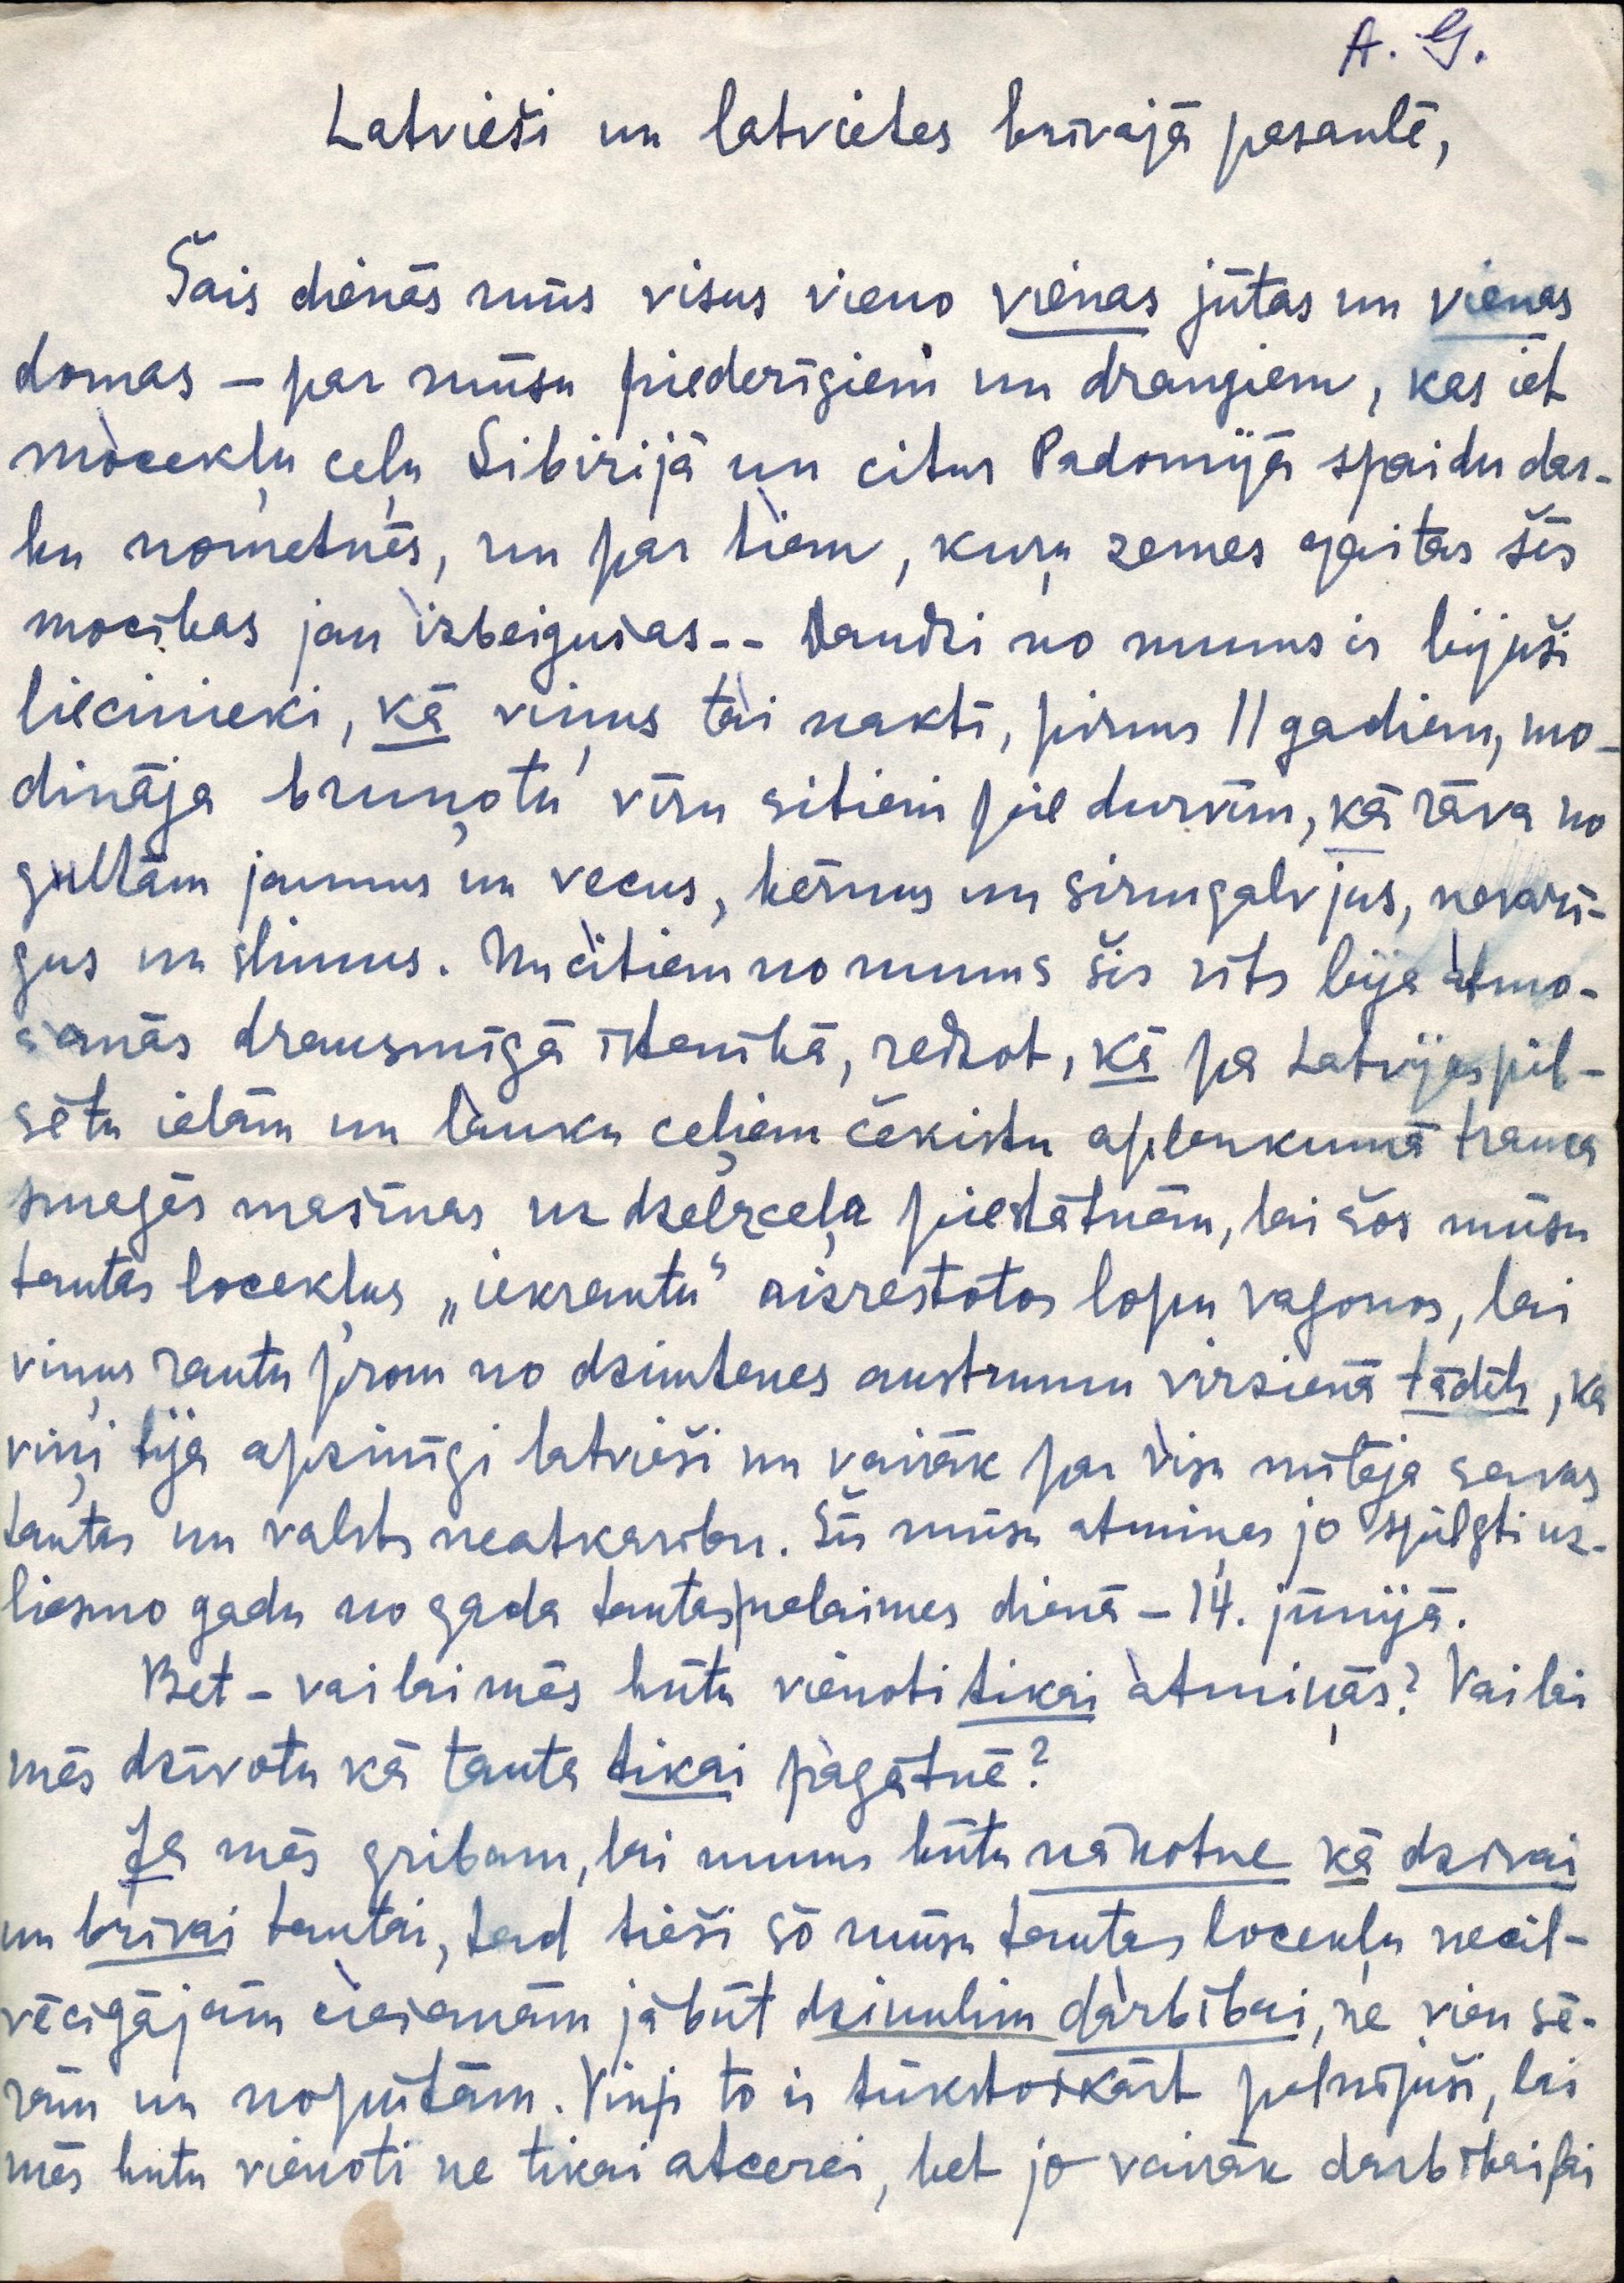 A. G.
Latvieši un latvietes brīvajā pasaulē,
Šais dienās mūs visus vieno vienas jūtas un vienas
domas – par mūsu piederīgiem un draugiem, kas iet
mocekļu ceļu Sibirijā un citur Padomijā spaidu dar-
bu nometnēs, un par tiem, kuŗu zemes gaitas šīs
mocības jau izbeigušas-- Daudzi no mums ir bijuši
liecinieki, kā viņus tai naktī, pirms 11 gadiem, mo-
dināja bruņotu vīru sitieni pie durvīm, kā rāva no
gultām jaunus un vecus, bērnus un sirmgalvjus, nevarī-
gus un slimus. Un citiem no mums šis rīts bija atmo-
šanās drausmīgā īstenībā, redzot, kā pa Latvijas pil-
sētu ielām un lauku ceļiem čekistu aplenkumā trauca
smagās mašīnas uz dzelzceļa piestātnēm, lai šos mūsu
tautas locekļus „iekrautu“ aizrestotos lopu vagonos, lai
viņus rautu prom no dzimtenes austrumu virzienā tādēļ, ka
viņi bija apzinīgi latvieši un vairāk par visu mīlēja savas
tautas un valsts neatkarību. Šīs mūsu atmiņas jo spilgti uz-
liesmo gadu no gada tautas nelaimes dienā – 14. jūnijā.
Bet – vai lai mēs būtu vienoti tikai atmiņās? Vai lai
mēs dzīvotu kā tauta tikai pagātnē?
Ja mēs gribam, lai mums būtu nākotne kā dzīvai
un brīvai tautai, tad tieši šo mūsu tautas locekļu necil-
vēcīgajām ciešanām jābūt dzinulim darbībai, ne vien sē-
rām un nopūtām. Viņi to ir tūkstoškārt pelnījuši, lai
mēs būtu vienoti ne tikai atcerei, bet jo vairāk darbībai, lai